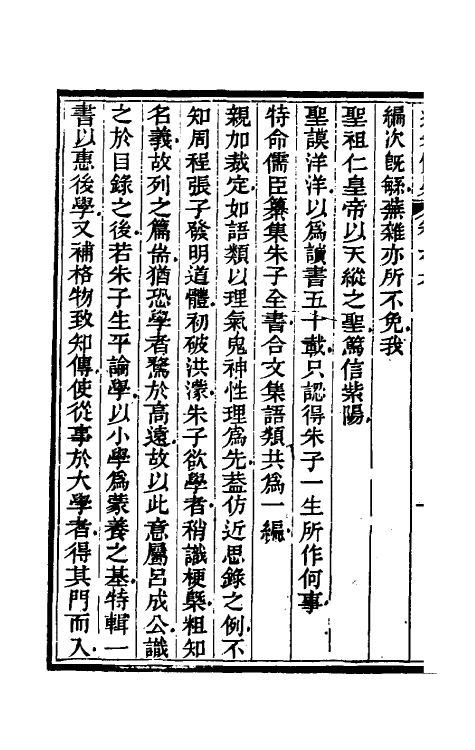 編次既繇蕪雜亦所不免我
聖祖仁皇帝以天縱之聖篤信紫陽
聖謨洋洋以爲讀書五十載只認得朱子一生所作何事
特命儒臣纂集朱子全書合文集語類共爲一編
親加裁定如語類以理氣鬼神性理爲先葢仿近思錄之例不
知周程張子發明道體初破洪濛朱子欲學者稍識梗槩粗知
名義故列之篇耑猶恐學者騖於高遠故以此意屬呂成公識
之於目錄之後若朱子生平論學以小學爲蒙養之基特輯一
書以惠後學又補格物致知傳使從事於大學者得其門而入